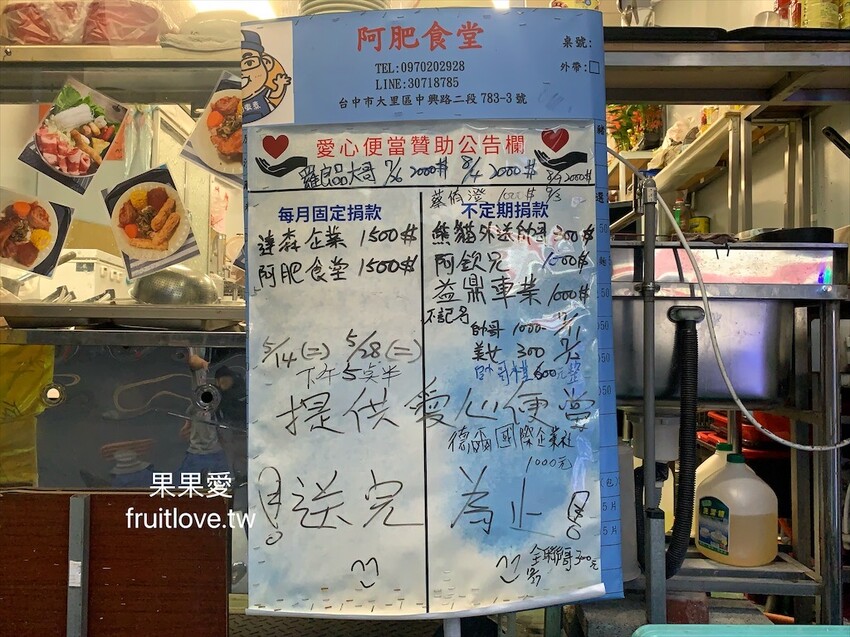 阿肥食堂
桌號:
TEL:0970202928
外帶:□
LINE:30718785
台中市大里區中興路二段783-3號
愛心便當贊助公告欄
羅良品大哥 7/26 2000# 8/4 2000# 8/9 2000#
9/3
每月固定捐款
不定期捐款
達森企業 1500#
阿肥食堂 1500#
熊貓外送帥哥 300#
阿欽兄 1500#
益鼎車業 1000#
不記名
帥哥 1000
美女 300
600元整
5/14(二) 5/28(二)
下午5點半
提供愛心便當
國際企業社
1000元
送完為止
300元
果果愛
fruitlove.tw